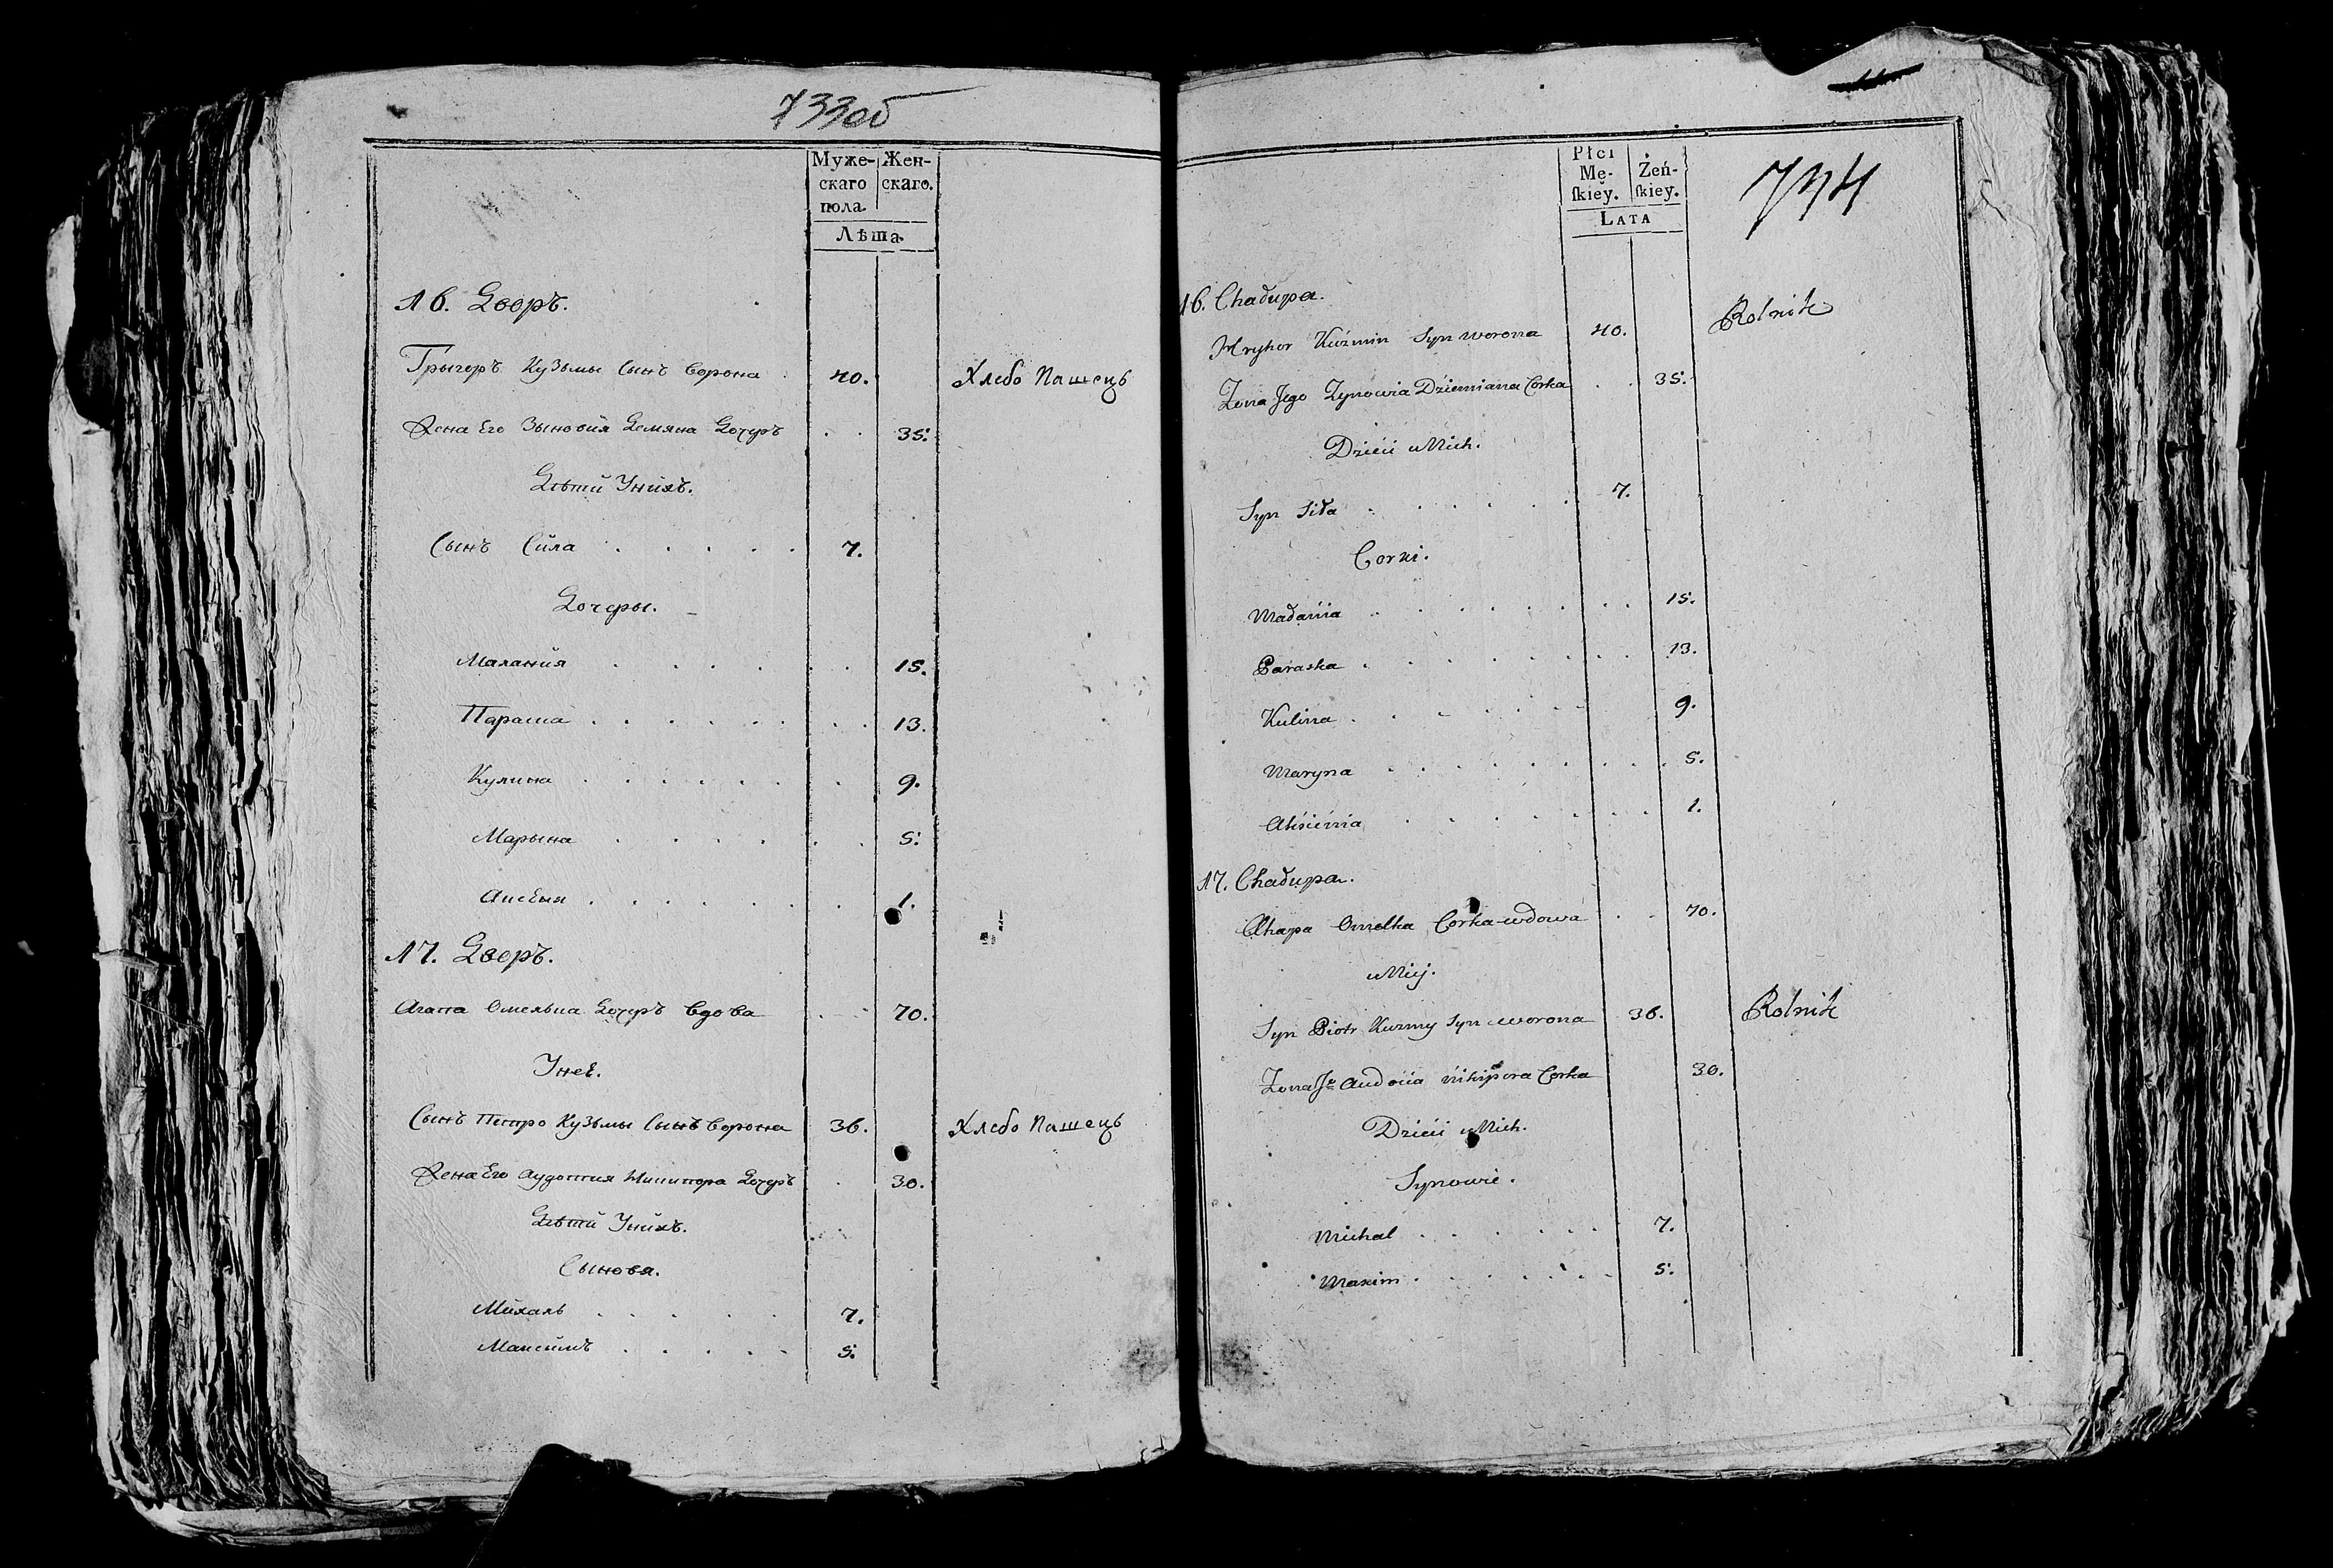 733об
Муже-
скаго
пола.
Жен-
скаго.
Лѣта.
16. Дворъ.
Грыгоръ Кузьмы Сынъ Ворона 40. Хлебо Пашецъ
Жена Его Зыновия Демяна Дочеръ . . 35.
Дѣти Уныхъ.
Сынъ Сила . . . . . 7.
Дочеры.
Малания . . . . . . 15.
Параша . . . . . . . 13.
Кулина . . . . . . 9.
Марына . . . . . . 5.
Аксеня . . . . . . 1.
17. Дворъ.
Агапа Омелька Дочеръ Вдова . . 70.
Унее.
Сынъ Петро Кузьмы Сынъ Ворона 36. Хлебо Пашецъ
Жена Его Аудотия Никипора Дочеръ . 30.
Дѣти Уныхъ.
Сыновя.
Михаль . . . . 7.
Максимъ . . . . . 5.
734
Płci
Mę-
ſkiey.
Żeń-
ſkiey.
LATA
16. Chałupa.
Hryhor Kuźmin Syn Worona 40. Rolnik
Zona Jego Zynowia Dziemiana Corka . . 35.
Dzieci u Nich.
Syn Siła . . . . . . 7.
Corki.
Małania . . . . . . . . 15.
Paraska . . . . . . . . 13.
Kulina . . . . . . 9.
Maryna . . . . . . . . . 5.
Aksienia . . . . . . . . 1.
17. Chałupa.
Ahapa Omelka Corka wdowa . . 70.
u Niej.
Syn Piotr Kuzmy Syn Worona 36. Rolnik
Zona Jo Audocia Nikipora Corka 30.
Dzieci u Nich.
Synowie.
Michał . . . . . . 7.
Maxim . . . . . . . 5.